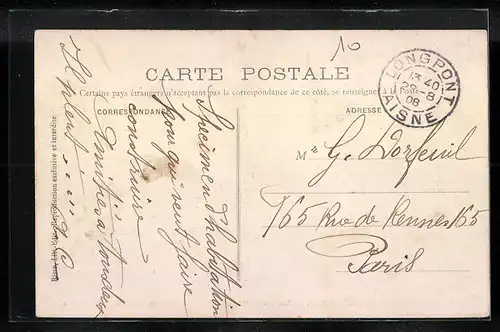 10
CARTE POSTALE
Certains pays étrangers n'acceptant pas la correspondance de ce côté, se renseigner à la Poste
CORRESPONDANCE
ADRESSE
LONGPONT
13 40
8
08
AISNE
Specimen d'habitation
pour qui veut faire
construire
Amitiés à tous deux
Il pleut
Mr G. Dorfeuil
165 Rue de Rennes 165
Paris
Reproduction exclusive et interdite